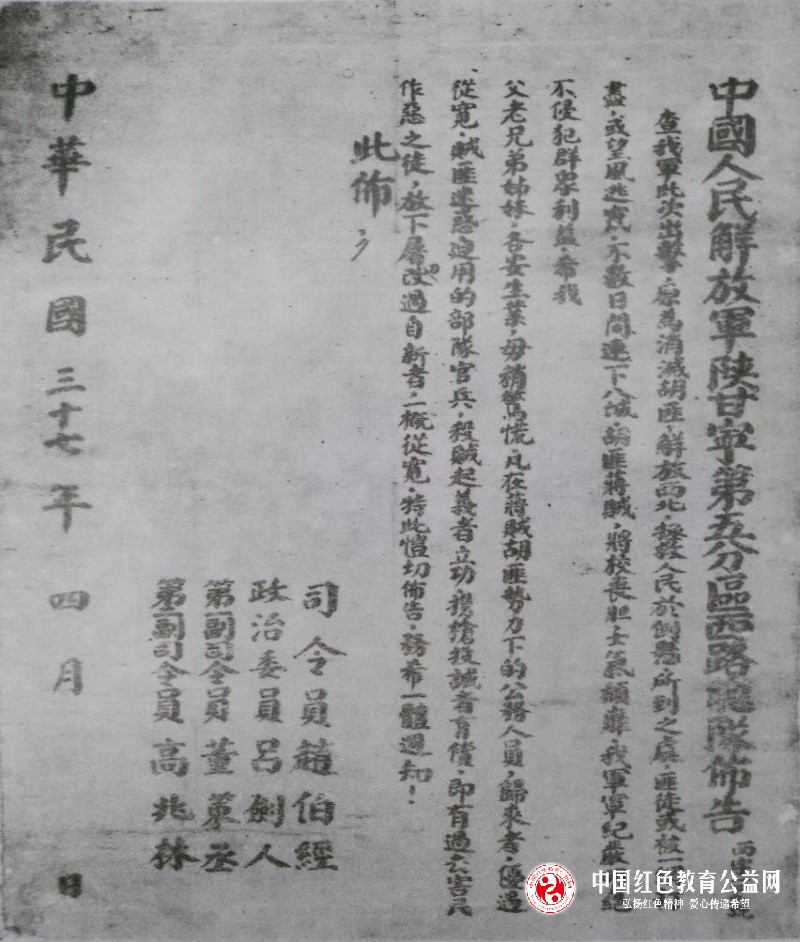 中國人民解放軍陝甘寧第五分區西路總隊佈告
查我軍此次出擊，原為消滅胡匪，解放西北，拯救人民於倒懸，所到之處，匪徒或被一
盡，或望風逃竄，不數日間連下八城，胡匪蔣賊，將校喪胆，士氣頹靡，我軍軍紀嚴
不侵犯群眾利益，希我
父老兄弟姊妹，各安生業，毋稍驚慌，凡在蔣賊胡匪勢力下的公務人員，歸來者，優遇
從寬，賊匪遣惑迫用的部隊官兵，殺賊起義者立功，携槍投誠者有償，即有過去害民
作惡之徒，放下屠改過自新者，一概從寬，特此愷切佈告，務希一體週知！
此佈
司令員 趙伯經
政治委員 呂劍人
第一副司令員 董策丞
第二副司令員 高兆林
中華民國三十七年 四月 日
中国红色教育公益网
弘扬红色精神 爱心传递希望